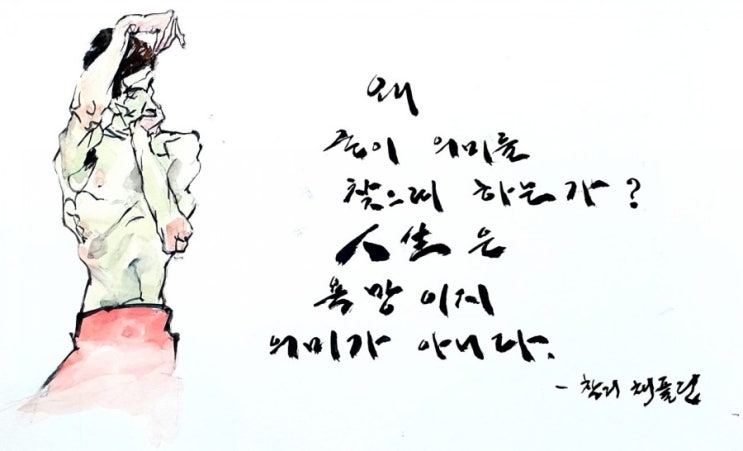 왜
굳이 의미를
찾으려 하는가?
人生은
욕망이지
의미가 아니다.
- 찰리 채플린